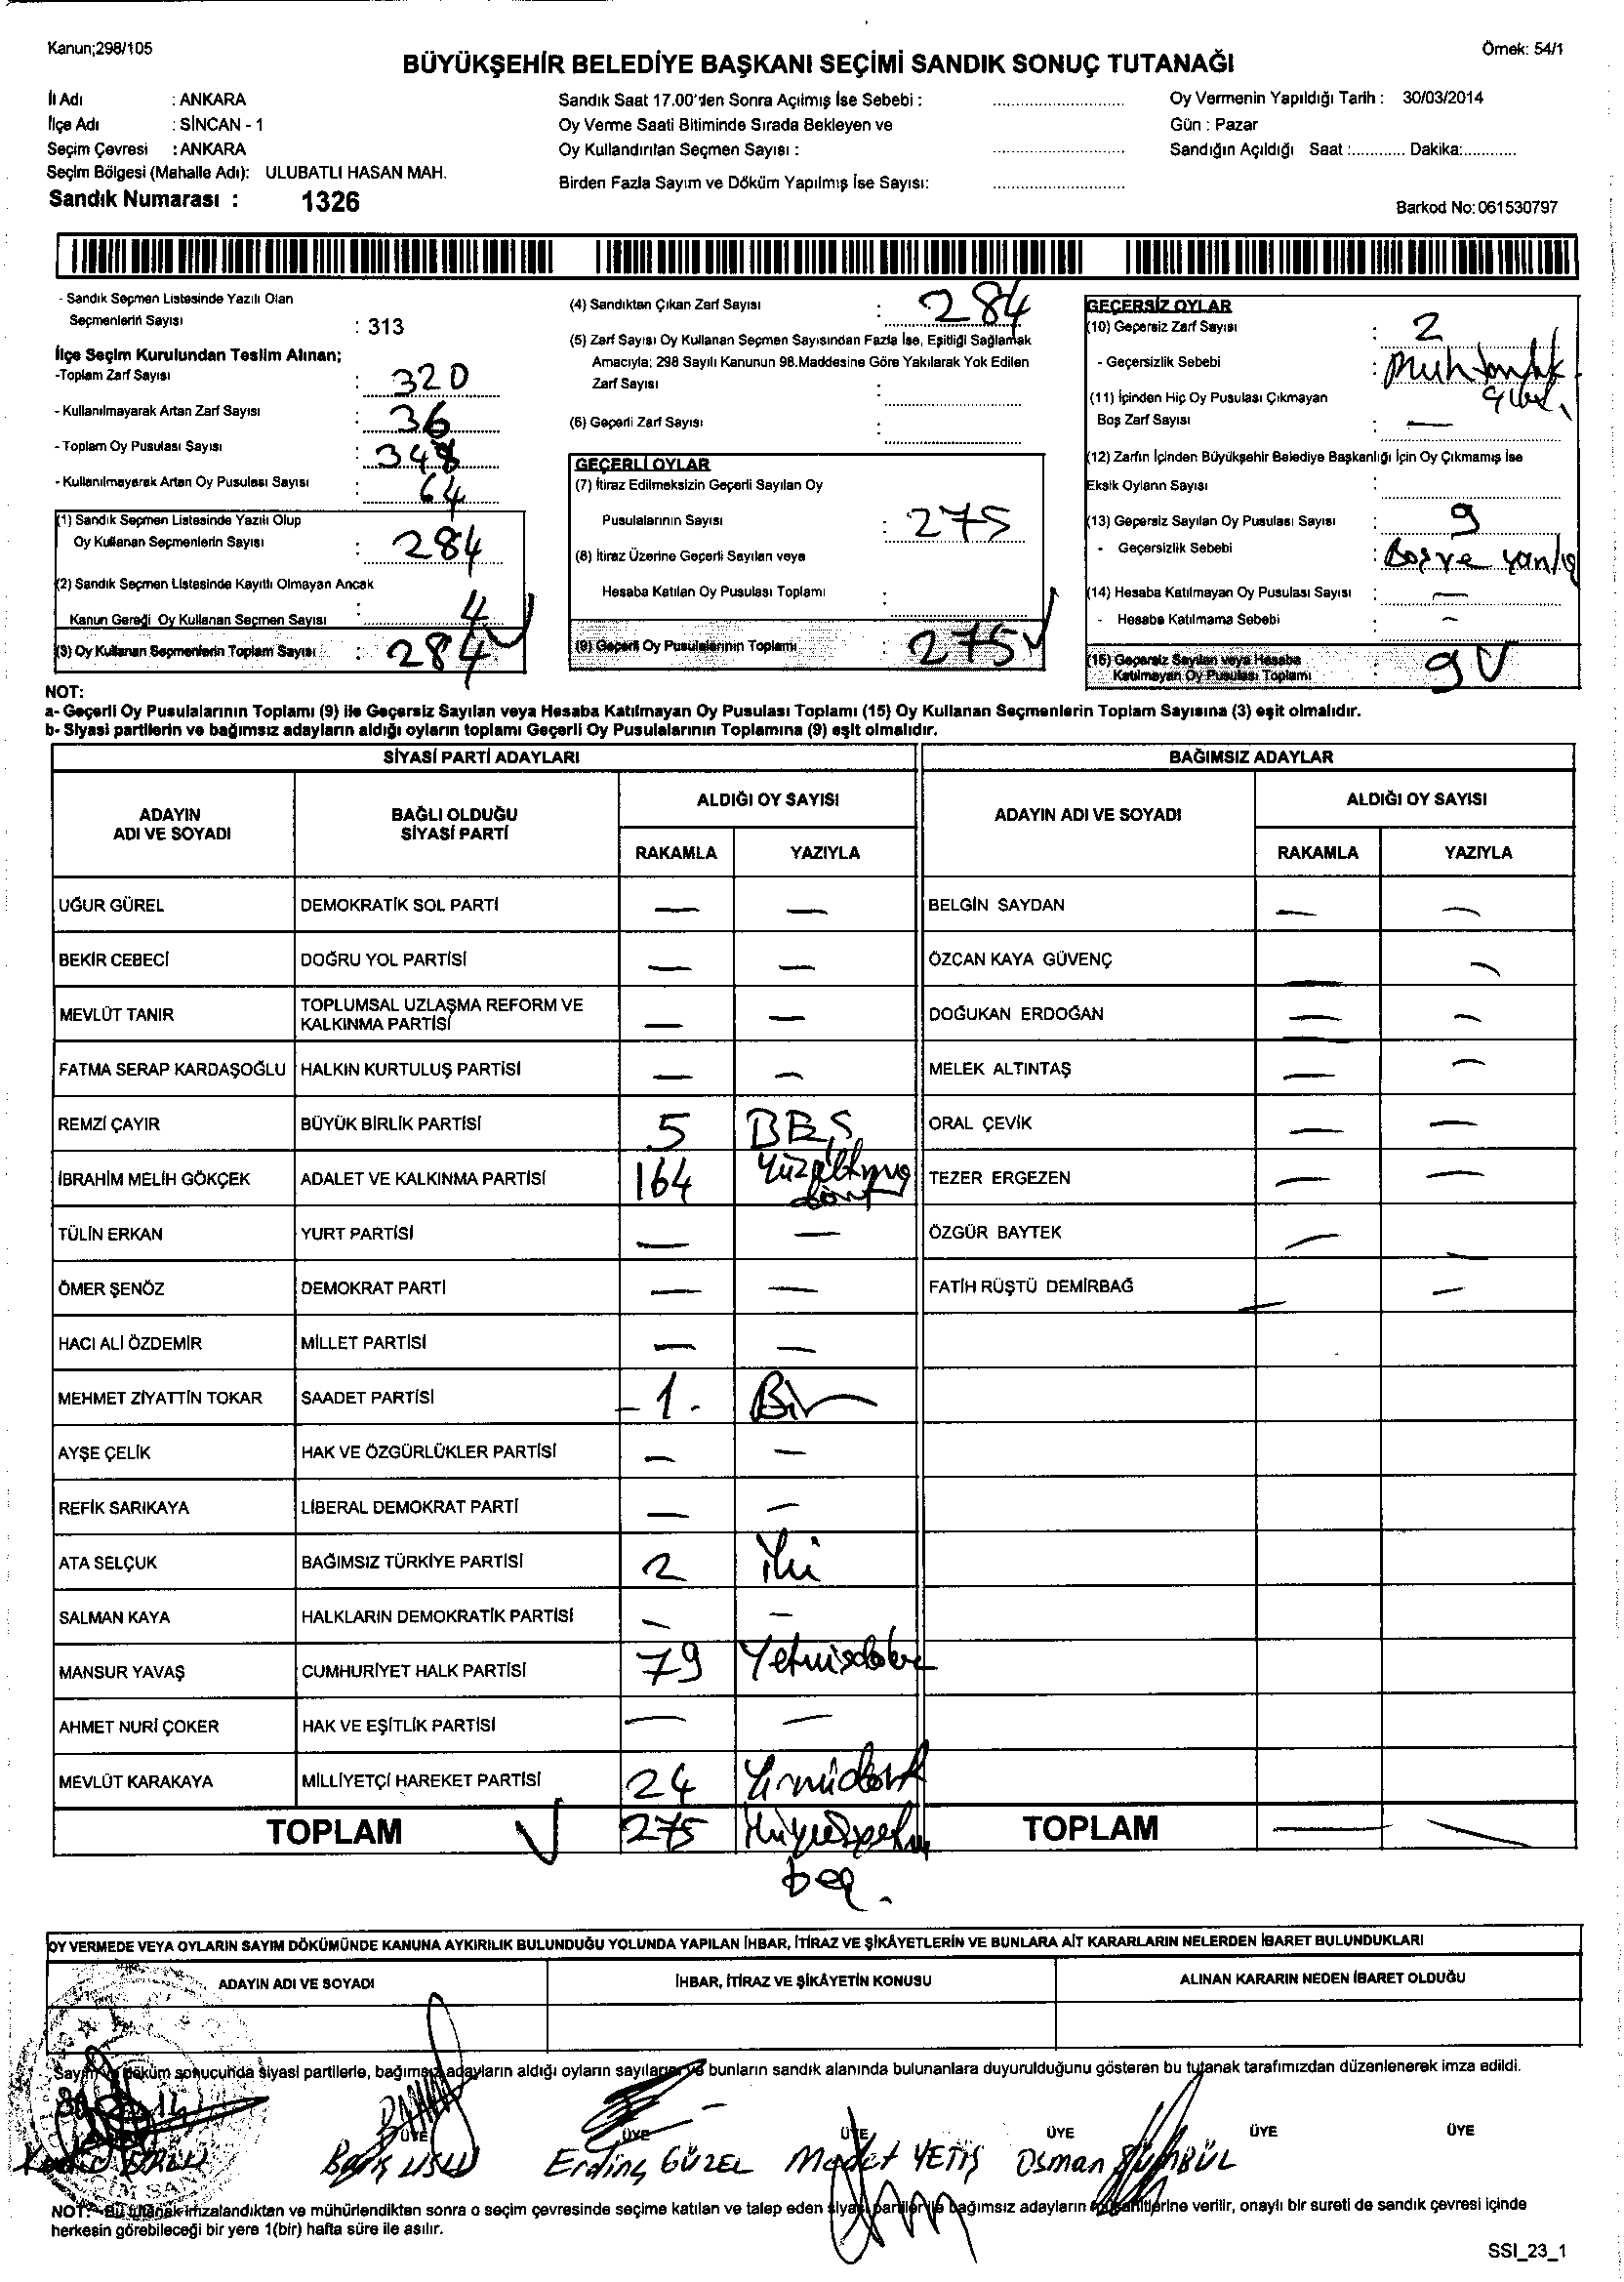 Kanun;298/105
Örnek: 54/1
BÜYÜKŞEHİR BELEDİYE BAŞKANI SEÇİMİ SANDIK SONUÇ TUTANAĞI
İl Adı : ANKARA
İlçe Adı : SİNCAN - 1
Seçim Çevresi : ANKARA
Seçim Bölgesi (Mahalle Adı): ULUBATLI HASAN MAH.
Sandık Numarası : 1326
Sandık Saat 17.00'den Sonra Açılmış İse Sebebi :
Oy Verme Saati Bitiminde Sırada Bekleyen ve
Oy Kullandırılan Seçmen Sayısı :
Birden Fazla Sayım ve Döküm Yapılmış İse Sayısı:
Oy Vermenin Yapıldığı Tarih : 30/03/2014
Gün : Pazar
Sandığın Açıldığı Saat :............ Dakika:............
Barkod No: 061530797
- Sandık Seçmen Listesinde Yazılı Olan
Seçmenlerin Sayısı : 313
İlçe Seçim Kurulundan Teslim Alınan;
-Toplam Zarf Sayısı : 320
- Kullanılmayarak Artan Zarf Sayısı : 36
- Toplam Oy Pusulası Sayısı : 348
- Kullanılmayarak Artan Oy Pusulası Sayısı : 64
(1) Sandık Seçmen Listesinde Yazılı Olup
Oy Kullanan Seçmenlerin Sayısı : 284
(2) Sandık Seçmen Listesinde Kayıtlı Olmayan Ancak
Kanun Gereği Oy Kullanan Seçmen Sayısı : 4
(3) Oy Kullanan Seçmenlerin Toplam Sayısı : 284
(4) Sandıktan Çıkan Zarf Sayısı : 284
(5) Zarf Sayısı Oy Kullanan Seçmen Sayısından Fazla İse, Eşitliği Sağlamak
Amacıyla; 298 Sayılı Kanunun 98.Maddesine Göre Yakılarak Yok Edilen
Zarf Sayısı :
(6) Geçerli Zarf Sayısı :
GEÇERLİ OYLAR
(7) İtiraz Edilmeksizin Geçerli Sayılan Oy
Pusulalarının Sayısı : 275
(8) İtiraz Üzerine Geçerli Sayılan veya
Hesaba Katılan Oy Pusulası Toplamı :
(9) Geçerli Oy Pusulalarının Toplamı : 275
GEÇERSİZ OYLAR
(10) Geçersiz Zarf Sayısı : 2
- Geçersizlik Sebebi : Muhtarlık
(11) İçinden Hiç Oy Pusulası Çıkmayan
Boş Zarf Sayısı : —
(12) Zarfın İçinden Büyükşehir Belediye Başkanlığı İçin Oy Çıkmamış İse
Eksik Oyların Sayısı :
(13) Geçersiz Sayılan Oy Pusulası Sayısı : 9
- Geçersizlik Sebebi : Boş ve yanlış
(14) Hesaba Katılmayan Oy Pusulası Sayısı : —
- Hesaba Katılmama Sebebi : -
(15) Geçersiz Sayılan veya Hesaba
Katılmayan Oy Pusulası Toplamı : 9
NOT:
a- Geçerli Oy Pusulalarının Toplamı (9) ile Geçersiz Sayılan veya Hesaba Katılmayan Oy Pusulası Toplamı (15) Oy Kullanan Seçmenlerin Toplam Sayısına (3) eşit olmalıdır.
b- Siyasi partilerin ve bağımsız adayların aldığı oyların toplamı Geçerli Oy Pusulalarının Toplamına (9) eşit olmalıdır.
SİYASİ PARTİ ADAYLARI BAĞIMSIZ ADAYLAR
ADAYIN ADI VE SOYADI BAĞLI OLDUĞU SİYASİ PARTİ ALDIĞI OY SAYISI ADAYIN ADI VE SOYADI ALDIĞI OY SAYISI
RAKAMLA YAZIYLA RAKAMLA YAZIYLA
UĞUR GÜREL DEMOKRATİK SOL PARTİ — — BELGİN SAYDAN — —
BEKİR CEBECİ DOĞRU YOL PARTİSİ — — ÖZCAN KAYA GÜVENÇ — —
MEVLÜT TANIR TOPLUMSAL UZLAŞMA REFORM VE KALKINMA PARTİSİ — — DOĞUKAN ERDOĞAN — —
FATMA SERAP KARDAŞOĞLU HALKIN KURTULUŞ PARTİSİ — — MELEK ALTINTAŞ — —
REMZİ ÇAYIR BÜYÜK BİRLİK PARTİSİ 5 BEŞ ORAL ÇEVİK — —
İBRAHİM MELİH GÖKÇEK ADALET VE KALKINMA PARTİSİ 164 Yüzaltmış dört TEZER ERGEZEN — —
TÜLİN ERKAN YURT PARTİSİ — — ÖZGÜR BAYTEK — —
ÖMER ŞENÖZ DEMOKRAT PARTİ — — FATİH RÜŞTÜ DEMİRBAĞ — —
HACI ALİ ÖZDEMİR MİLLET PARTİSİ — —
MEHMET ZİYATTİN TOKAR SAADET PARTİSİ - 1 - Bir
AYŞE ÇELİK HAK VE ÖZGÜRLÜKLER PARTİSİ — —
REFİK SARIKAYA LİBERAL DEMOKRAT PARTİ — —
ATA SELÇUK BAĞIMSIZ TÜRKİYE PARTİSİ 2 iki
SALMAN KAYA HALKLARIN DEMOKRATİK PARTİSİ — —
MANSUR YAVAŞ CUMHURİYET HALK PARTİSİ 79 Yetmişdokuz
AHMET NURİ ÇOKER HAK VE EŞİTLİK PARTİSİ — —
MEVLÜT KARAKAYA MİLLİYETÇİ HAREKET PARTİSİ 24 Yirmidört
TOPLAM 275 beş. TOPLAM — —
OY VERMEDE VEYA OYLARIN SAYIM DÖKÜMÜNDE KANUNA AYKIRILIK BULUNDUĞU YOLUNDA YAPILAN İHBAR, İTİRAZ VE ŞİKÂYETLERİN VE BUNLARA AİT KARARLARIN NELERDEN İBARET BULUNDUKLARI
ADAYIN ADI VE SOYADI İHBAR, İTİRAZ VE ŞİKÂYETİN KONUSU ALINAN KARARIN NEDEN İBARET OLDUĞU
Sayım döküm sonucunda siyasi partilerle, bağımsız adayların aldığı oyların sayıları ve bunların sandık alanında bulunanlara duyurulduğunu gösteren bu tutanak tarafımızdan düzenlenerek imza edildi.
ÜYE ÜYE ÜYE ÜYE ÜYE ÜYE
Barış USLU Erdinç GÜZEL YETİŞ Osman SÜMBÜL
NOT:-Bu tutanak imzalandıktan ve mühürlendikten sonra o seçim çevresinde seçime katılan ve talep eden siyasi partiler ile bağımsız adayların müşahitlerine verilir, onaylı bir sureti de sandık çevresi içinde
herkesin görebileceği bir yere 1(bir) hafta süre ile asılır.
SSI_23_1